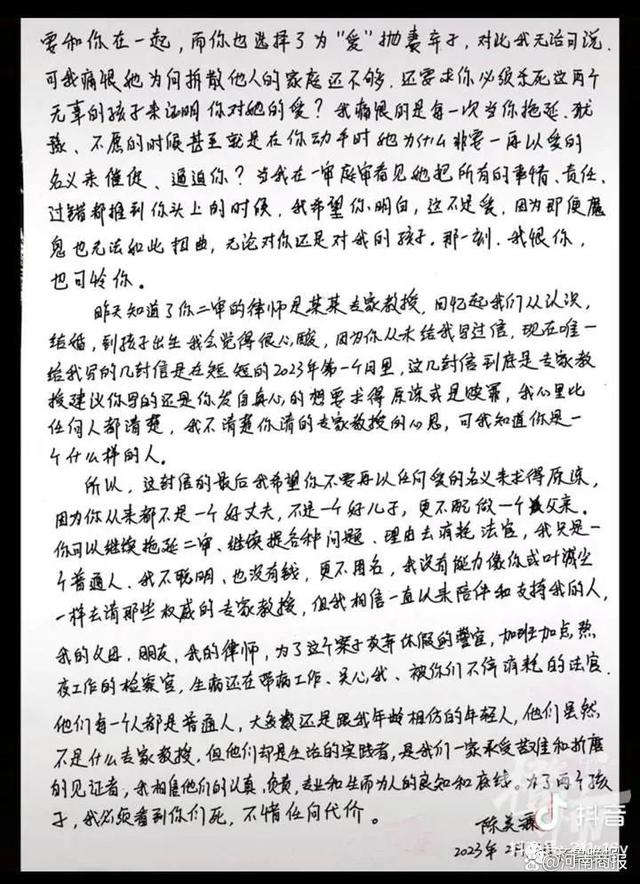 要和你在一起,而你也选择了为“爱”抛妻弃子,对此我无话可说.
可我痛恨她为何拆散他人的家庭还不够.还要求你必须杀死这两个
无辜的孩子来证明你对她的爱?我痛恨的是每一次当你拖延、犹
豫、不愿的时候甚至就是在你动手时她为什么非要一再以爱的
名义来催促、逼迫你?当我在一审庭审看见她把所有的事情、责任、
过错都推到你头上的时候,我希望你明白,这不是爱,因为即便魔
鬼也无法如此扭曲,无论对你还是对我的孩子。那一刻.我恨你,
也可怜你。
昨天知道了你二审的律师是某某专家教授,回忆起我们从认识,
结婚,到孩子出生我会觉得很心酸,因为你从未给我写过信,现在唯一
给我写的几封信是在短短的2023年第一个月里,这几封信到底是专家教
授建议你写的还是你发自真心的想要求得原谅或是赎罪,我心里比
任何人都清楚,我不清楚你请的专家教授的心思,可我知道你是一
个什么样的人。
所以,这封信的最后我希望你不要再以任何爱的名义来求得原谅,
因为你从来都不是一个好丈夫,不是一个好儿子,更不配做一个父亲。
你可以继续拖延二审、继续提各种问题、理由去消耗法官,我只是一
个普通人、我不聪明、也没有钱,更不用名,我没有能力像你或叶诚尘
一样去请那些权威的专家教授,但我相信一直以来陪伴和支持我的人,
我的父母、朋友,我的律师,为了这个案子放弃休假的警官,加班加点,熬
夜工作的检察官,生病还在带病工作、关心我、被你们不停消耗的法官.
他们每一个人都是普通人,大多数还是跟我年龄相仿的年轻人,他们虽然
不是什么专家教授,但他们却是生活的实践者,是我们一家承受苦难和折磨
的见证者,我相信他们的认真,负责,专业和生而为人的良知和底线。为了两个孩
子,我必须看到你们死,不惜任何代价。
陈美霖
2023年2月
抖音
河南商报